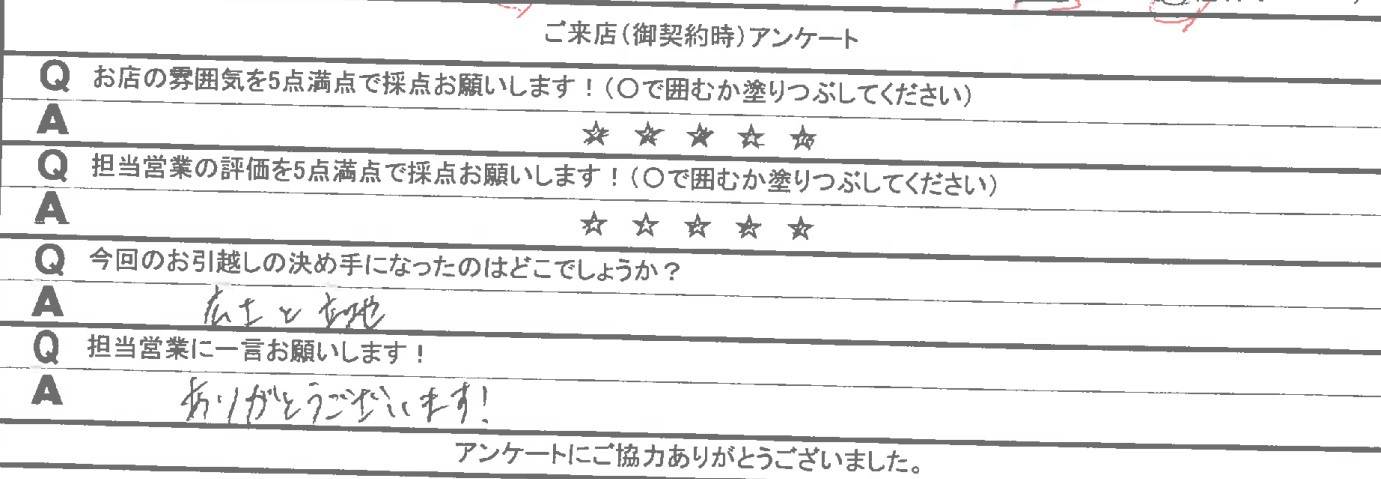 ご来店(御契約時)アンケート
Q お店の雰囲気を5点満点で採点お願いします!(〇で囲むか塗りつぶしてください)
A ☆ ☆ ☆ ☆ ☆
Q 担当営業の評価を5点満点で採点お願いします!(〇で囲むか塗りつぶしてください)
A ☆ ☆ ☆ ☆ ☆
Q 今回のお引越しの決め手になったのはどこでしょうか?
A 広さと立地
Q 担当営業に一言お願いします!
A ありがとうございます!
アンケートにご協力ありがとうございました。